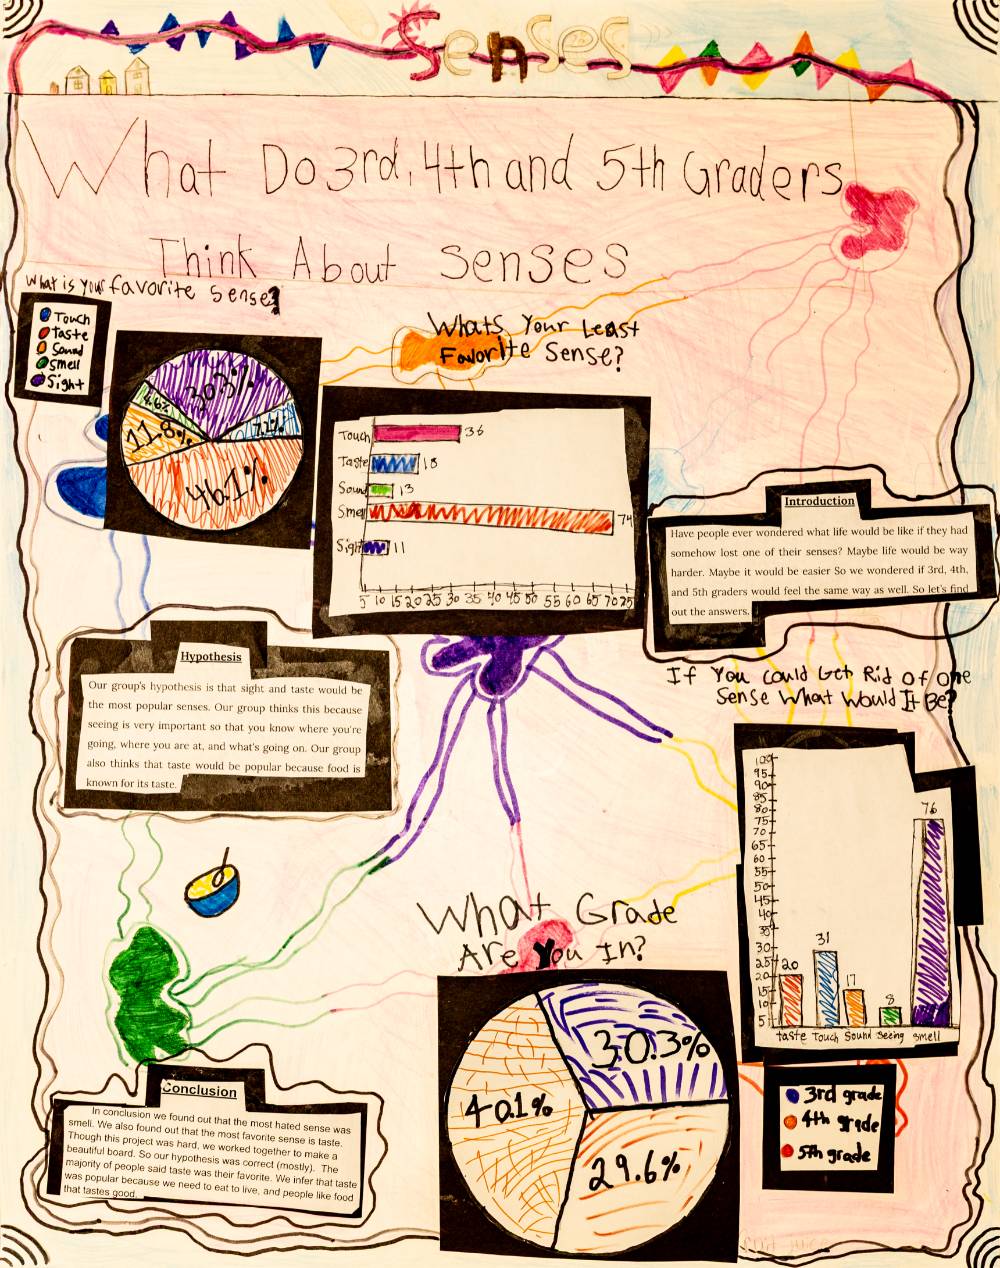 Senses
What Do 3rd, 4th and 5th Graders
Think About Senses
What is your favorite sense?
Touch
taste
Sound
Smell
Sight
30.3%
4.6%
11.8%
7.2%
46.1%
Whats Your Least
Favorite Sense?
Touch 36
Taste 18
Sound 13
Smell 74
Sight 11
5 10 15 20 25 30 35 40 45 50 55 60 65 70 75
Introduction
Have people ever wondered what life would be like if they had
somehow lost one of their senses? Maybe life would be way
harder. Maybe it would be easier So we wondered if 3rd, 4th,
and 5th graders would feel the same way as well. So let's find
out the answers.
Hypothesis
Our group's hypothesis is that sight and taste would be
the most popular senses. Our group thinks this because
seeing is very important so that you know where you're
going, where you are at, and what's going on. Our group
also thinks that taste would be popular because food is
known for its taste.
If You Could Get Rid Of One
Sense What Would It Be?
100
95
90
85
80
75
70
65
60
55
50
45
40
35
30
25
20
15
10
5
20
31
17
8
76
taste Touch Sound Seeing smell
What Grade
Are You In?
30.3%
40.1%
29.6%
3rd grade
4th grade
5th grade
Conclusion
In conclusion we found out that the most hated sense was
smell. We also found out that the most favorite sense is taste.
Though this project was hard, we worked together to make a
beautiful board. So our hypothesis was correct (mostly). The
majority of people said taste was their favorite. We infer that taste
was popular because we need to eat to live, and people like food
that tastes good.